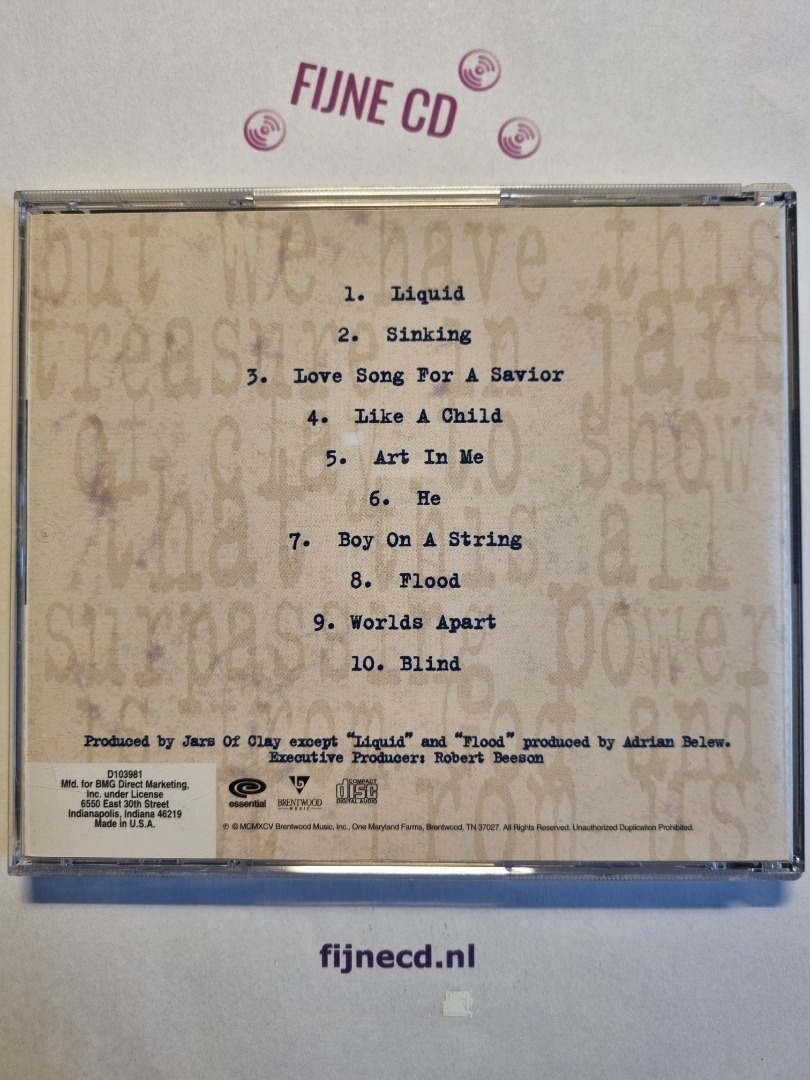 FIJNE CD
but we have this
treasure in jars
of clay to show
that this all
surpassing power
is from God and
1. Liquid
2. Sinking
3. Love Song For A Savior
4. Like A Child
5. Art In Me
6. He
7. Boy On A String
8. Flood
9. Worlds Apart
10. Blind
Produced by Jars Of Clay except "Liquid" and "Flood" produced by Adrian Belew.
Executive Producer: Robert Beeson
D103981
Mfd. for BMG Direct Marketing,
Inc. under License
6550 East 30th Street
Indianapolis, Indiana 46219
Made in U.S.A.
essential
BRENTWOOD
MUSIC
COMPACT
disc
DIGITAL AUDIO
℗ © MCMXCV Brentwood Music, Inc., One Maryland Farms, Brentwood, TN 37027. All Rights Reserved. Unauthorized Duplication Prohibited.
fijnecd.nl